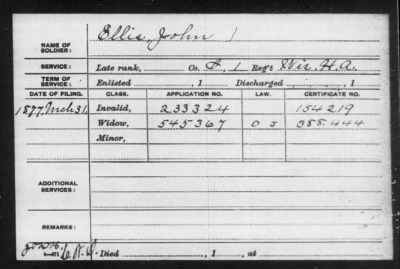 NAME OF SOLDIER: Ellis, John
SERVICE: Late rank, Co. F, 1 Reg't Wis. H. A.
TERM OF SERVICE: Enlisted , 1 Discharged , 1
DATE OF FILING. CLASS. APPLICATION NO. LAW. CERTIFICATE NO.
1877, Mch 31, Invalid, 233324 154219
Widow, 545367 O S 388.444
Minor,
ADDITIONAL SERVICES:
REMARKS:
Died , 1 , at